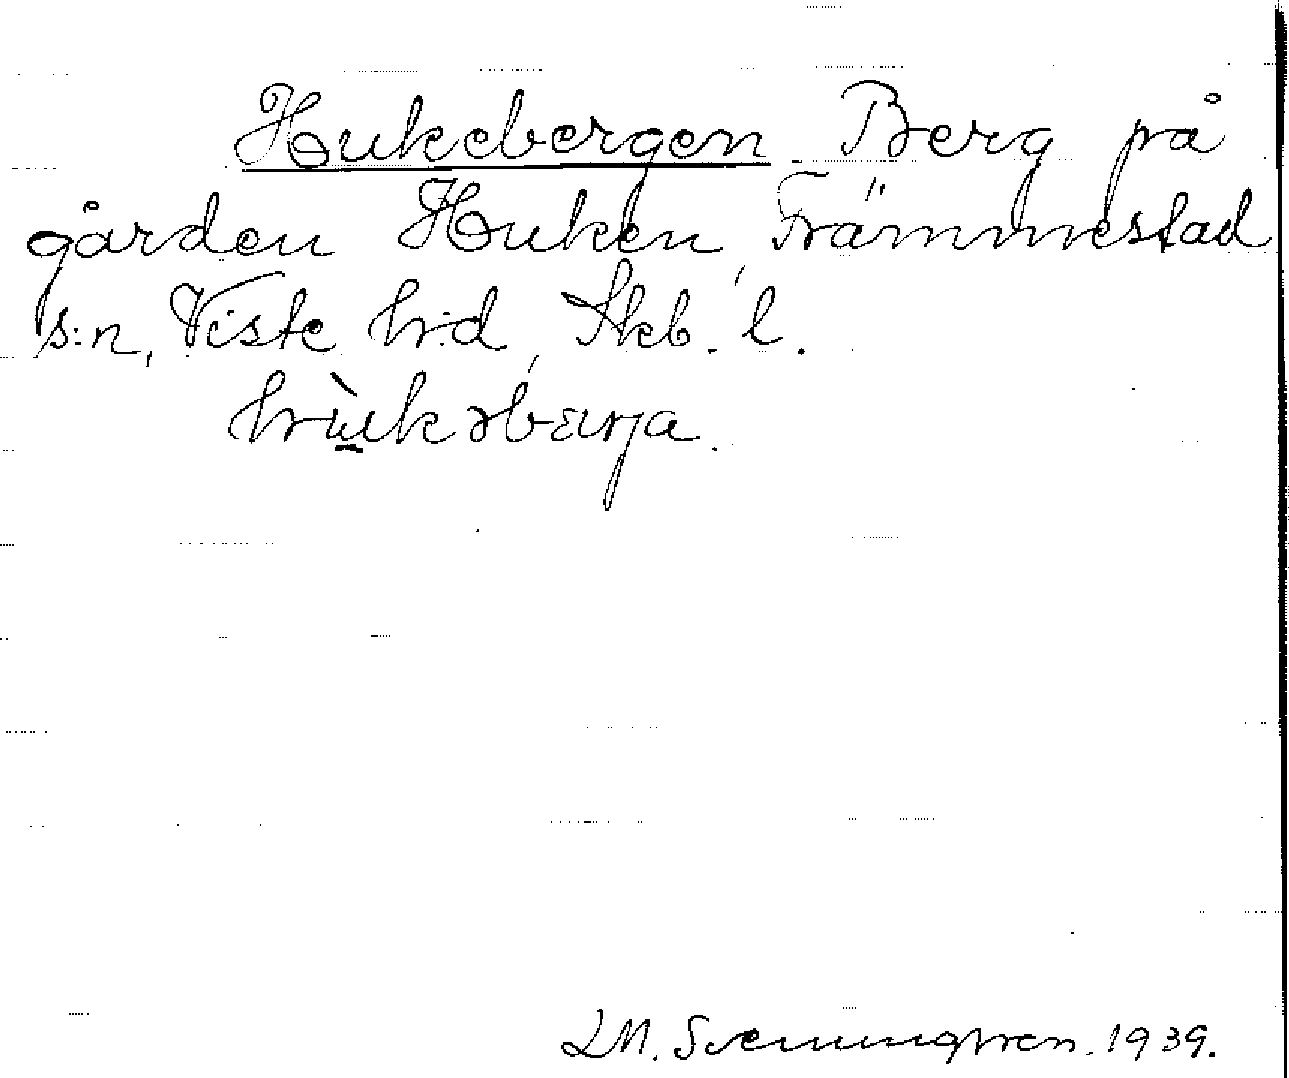 Hukebergen Berg på
gården Huken, Främmestad
s:n, Viste h:d, Skb. l.
hùkəbærja.
LM. Svenungsson. 1939.